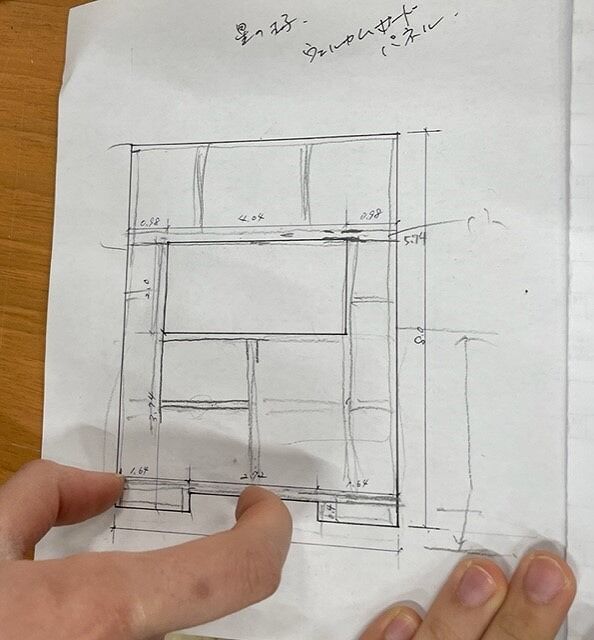 星の王子.
ウェルカムボード
パネル.
0.98 4.04 0.98
5.74
8.0
2.0
3.74
1.64 2.72 1.64